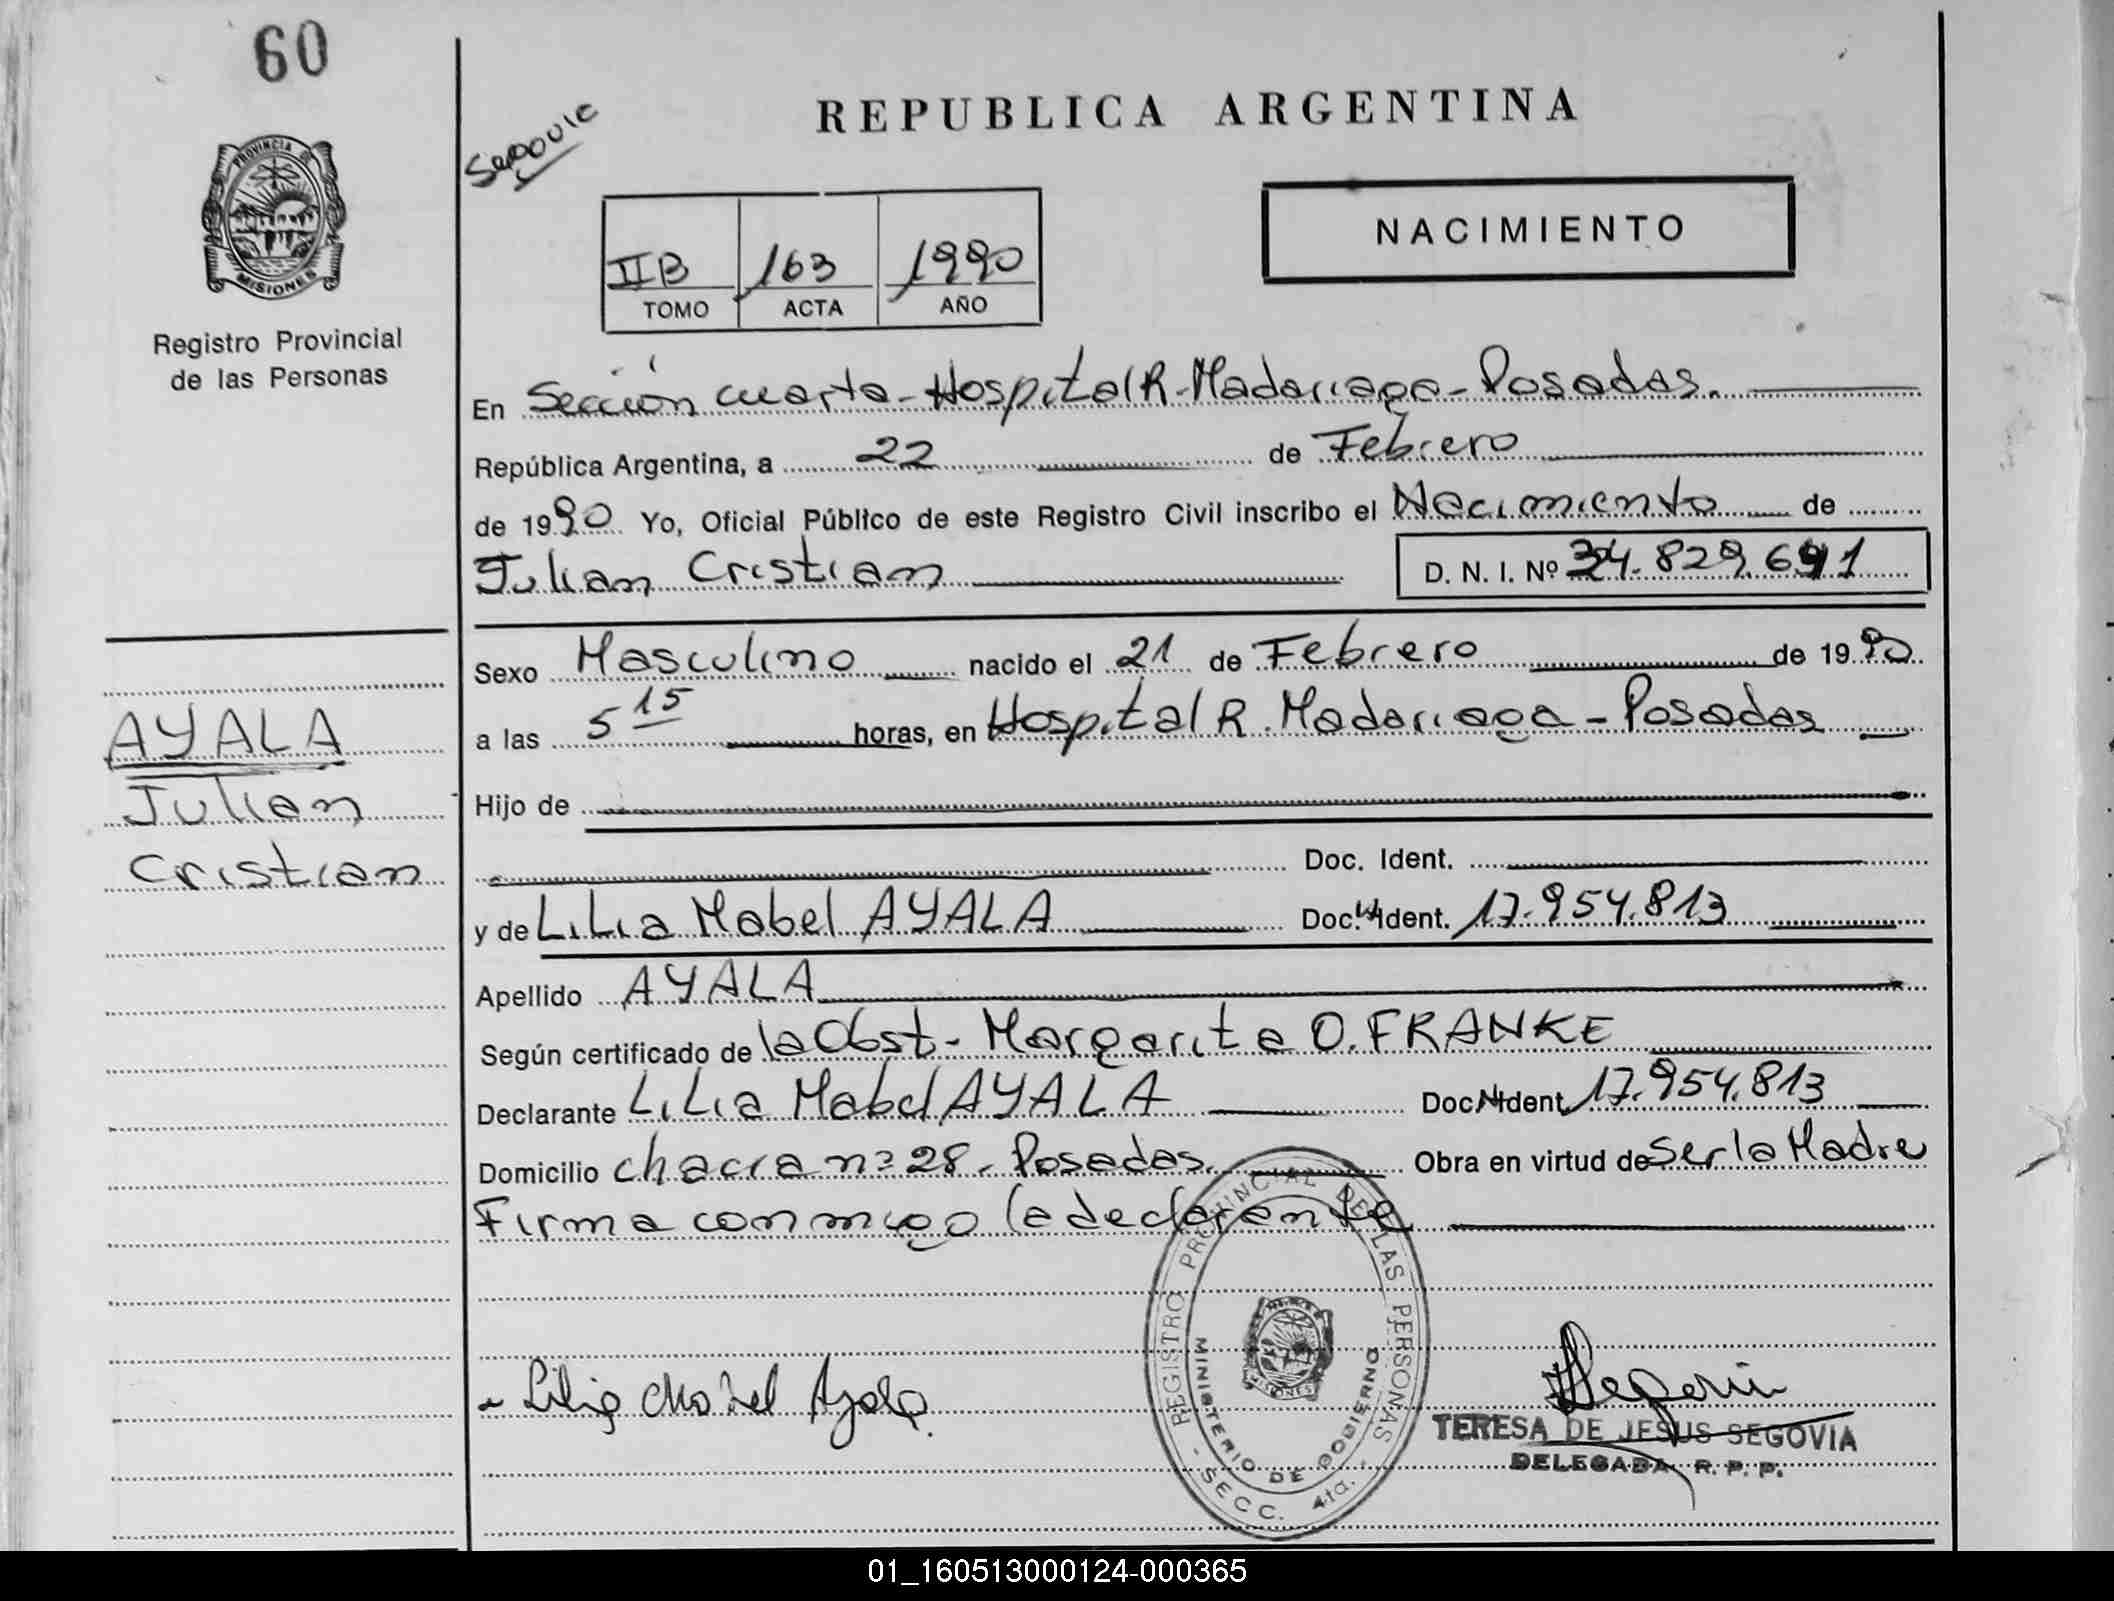 60
PROVINCIA DE
MISIONES
Registro Provincial
de las Personas
REPUBLICA ARGENTINA
IIB 163 1990
TOMO ACTA AÑO
NACIMIENTO
En Sección cuarta - Hospital R. Madariaga - Posadas.
República Argentina, a 22 de Febrero
de 1990 Yo, Oficial Público de este Registro Civil inscribo el Nacimiento de
Julian Cristian D. N. I. Nº 34.829.691
Sexo Masculino nacido el 21 de Febrero de 1990
a las 5 15 horas, en Hospital R. Madariaga - Posadas
Hijo de
Doc. Ident.
y de Lilia Mabel AYALA Doc. Ident. 17.954.813
Apellido AYALA
Según certificado de la Obst. Margarita O. FRANKE
Declarante Lilia Mabel AYALA Doc. Ident. 17.954.813
Domicilio chacra nº 28. Posadas. Obra en virtud de ser la Madre
Firma conmigo la declarante
AYALA
Julian
Cristian
Lilia Mabel Ayala
REGISTRO PROVINCIAL DE LAS PERSONAS
MINISTERIO DE GOBIERNO
MISIONES
- SECC. 4ta. -
Segovia
TERESA DE JESUS SEGOVIA
DELEGADA R. P. P.
01_160513000124-000365